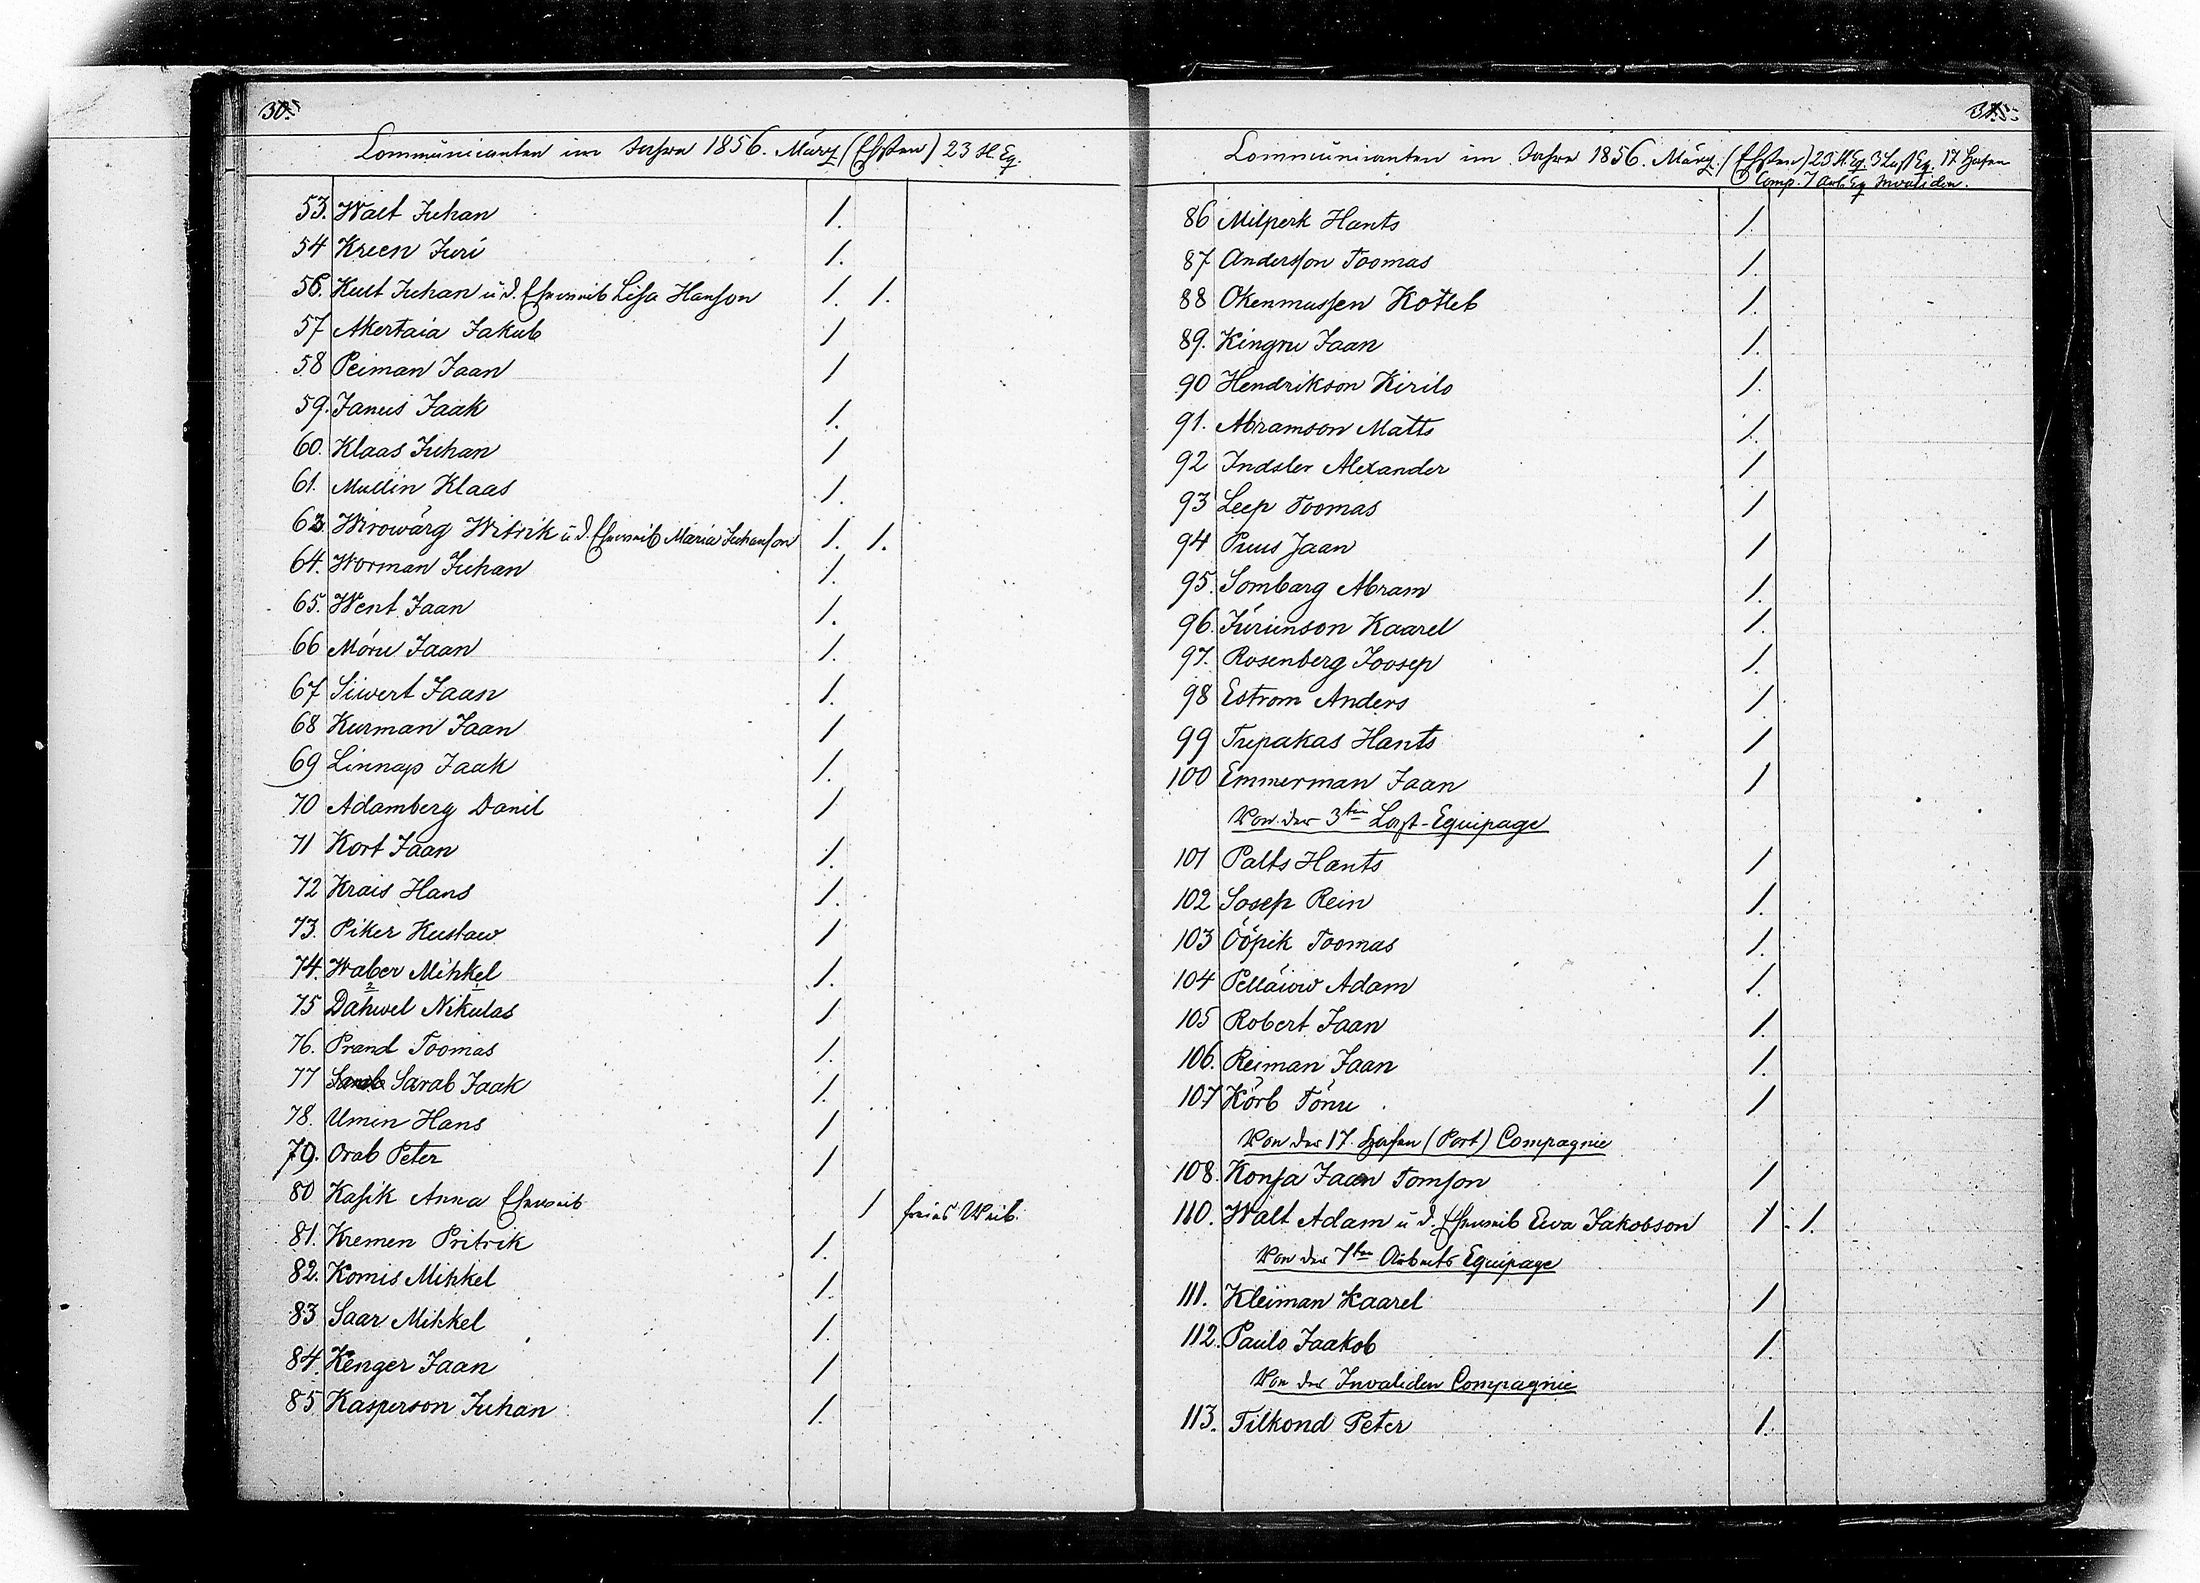 30.
Communicanten im Jahre 1856. März (Ehsten) 23 Fl. Eq.
53. Walt Juhan 1.
54 Kreen Juri 1.
56. Kust Juhan u. d. Eheweib Lisa Hanson 1. 1.
57 Akertaia Jakub 1
58 Peiman Jaan 1
59. Janus Jaak 1.
60. Klaas Juhan 1
61. Mullin Klaas 1.
63 Wirowärg Witrik u. d. Eheweib Maria Juhanson 1. 1.
64. Worman Juhan 1.
65. Went Jaan 1.
66 Móru Jaan 1.
67 Siwert Jaan 1.
68 Kurman Jaan 1
69 Linnap Jaak 1.
70 Adamberg Danil 1
71 Kort Jaan 1.
72 Krais Hans 1.
73. Piker Kustaw 1
74. Waber Mihkel 1.
75 Dahwel Nikulas 1
76. Prand Toomas 1.
77 Sarab Jaak 1.
78. Umin Hans 1
79. Orab Peter 1
80 Kasik Anna Eheweib 1 freies Weib.
81. Kremen Pritrik 1.
82. Komis Mihkel 1.
83 Saar Mihkel 1.
84. Kenger Jaan 1
85 Kasperson Juhan 1.
31.
Communicanten im Jahre 1856. März. (Ehsten) 23 Fl. Eq. 3 Last Eq. 17 Hafen
Comp. 7 Arb. Eq Invaliden.
86 Milperk Hants 1.
87 Andersson Toomas 1.
88 Okenmussen Kotleb 1.
89. Kingru Jaan 1.
90 Hendrikson Kirilo 1.
91. Abramson Matts 1.
92 Indsler Alexander 1
93 Leep Toomas 1
94 Puus Jaan 1
95. Sombarg Abram 1.
96. Jürienson Kaarel 1.
97. Rosenberg Joosep 1.
98 Estrom Anders 1
99 Trepakas Hants 1
100 Emmerman Jaan 1
Von der 3ten Last-Equipage
101 Palts Hants 1
102 Sosep Rein 1.
103 Ööpik Toomas 1.
104 Pelläiow Adam 1.
105 Robert Jaan 1.
106. Reiman Jaan 1.
107 Körb Tönu 1
Von der 17. Hafen (Port) Compagnie
108. Konsa Jaan Tomson 1
110. Walt Adam u. d. Eheweib Ewa Jakobson 1 1.
Von der 7ten Arbeits Equipage
111. Kleiman Kaarel 1
112. Paulo Jaakob 1.
Von der Invaliden Compagnie
113. Tilkond Peter 1.